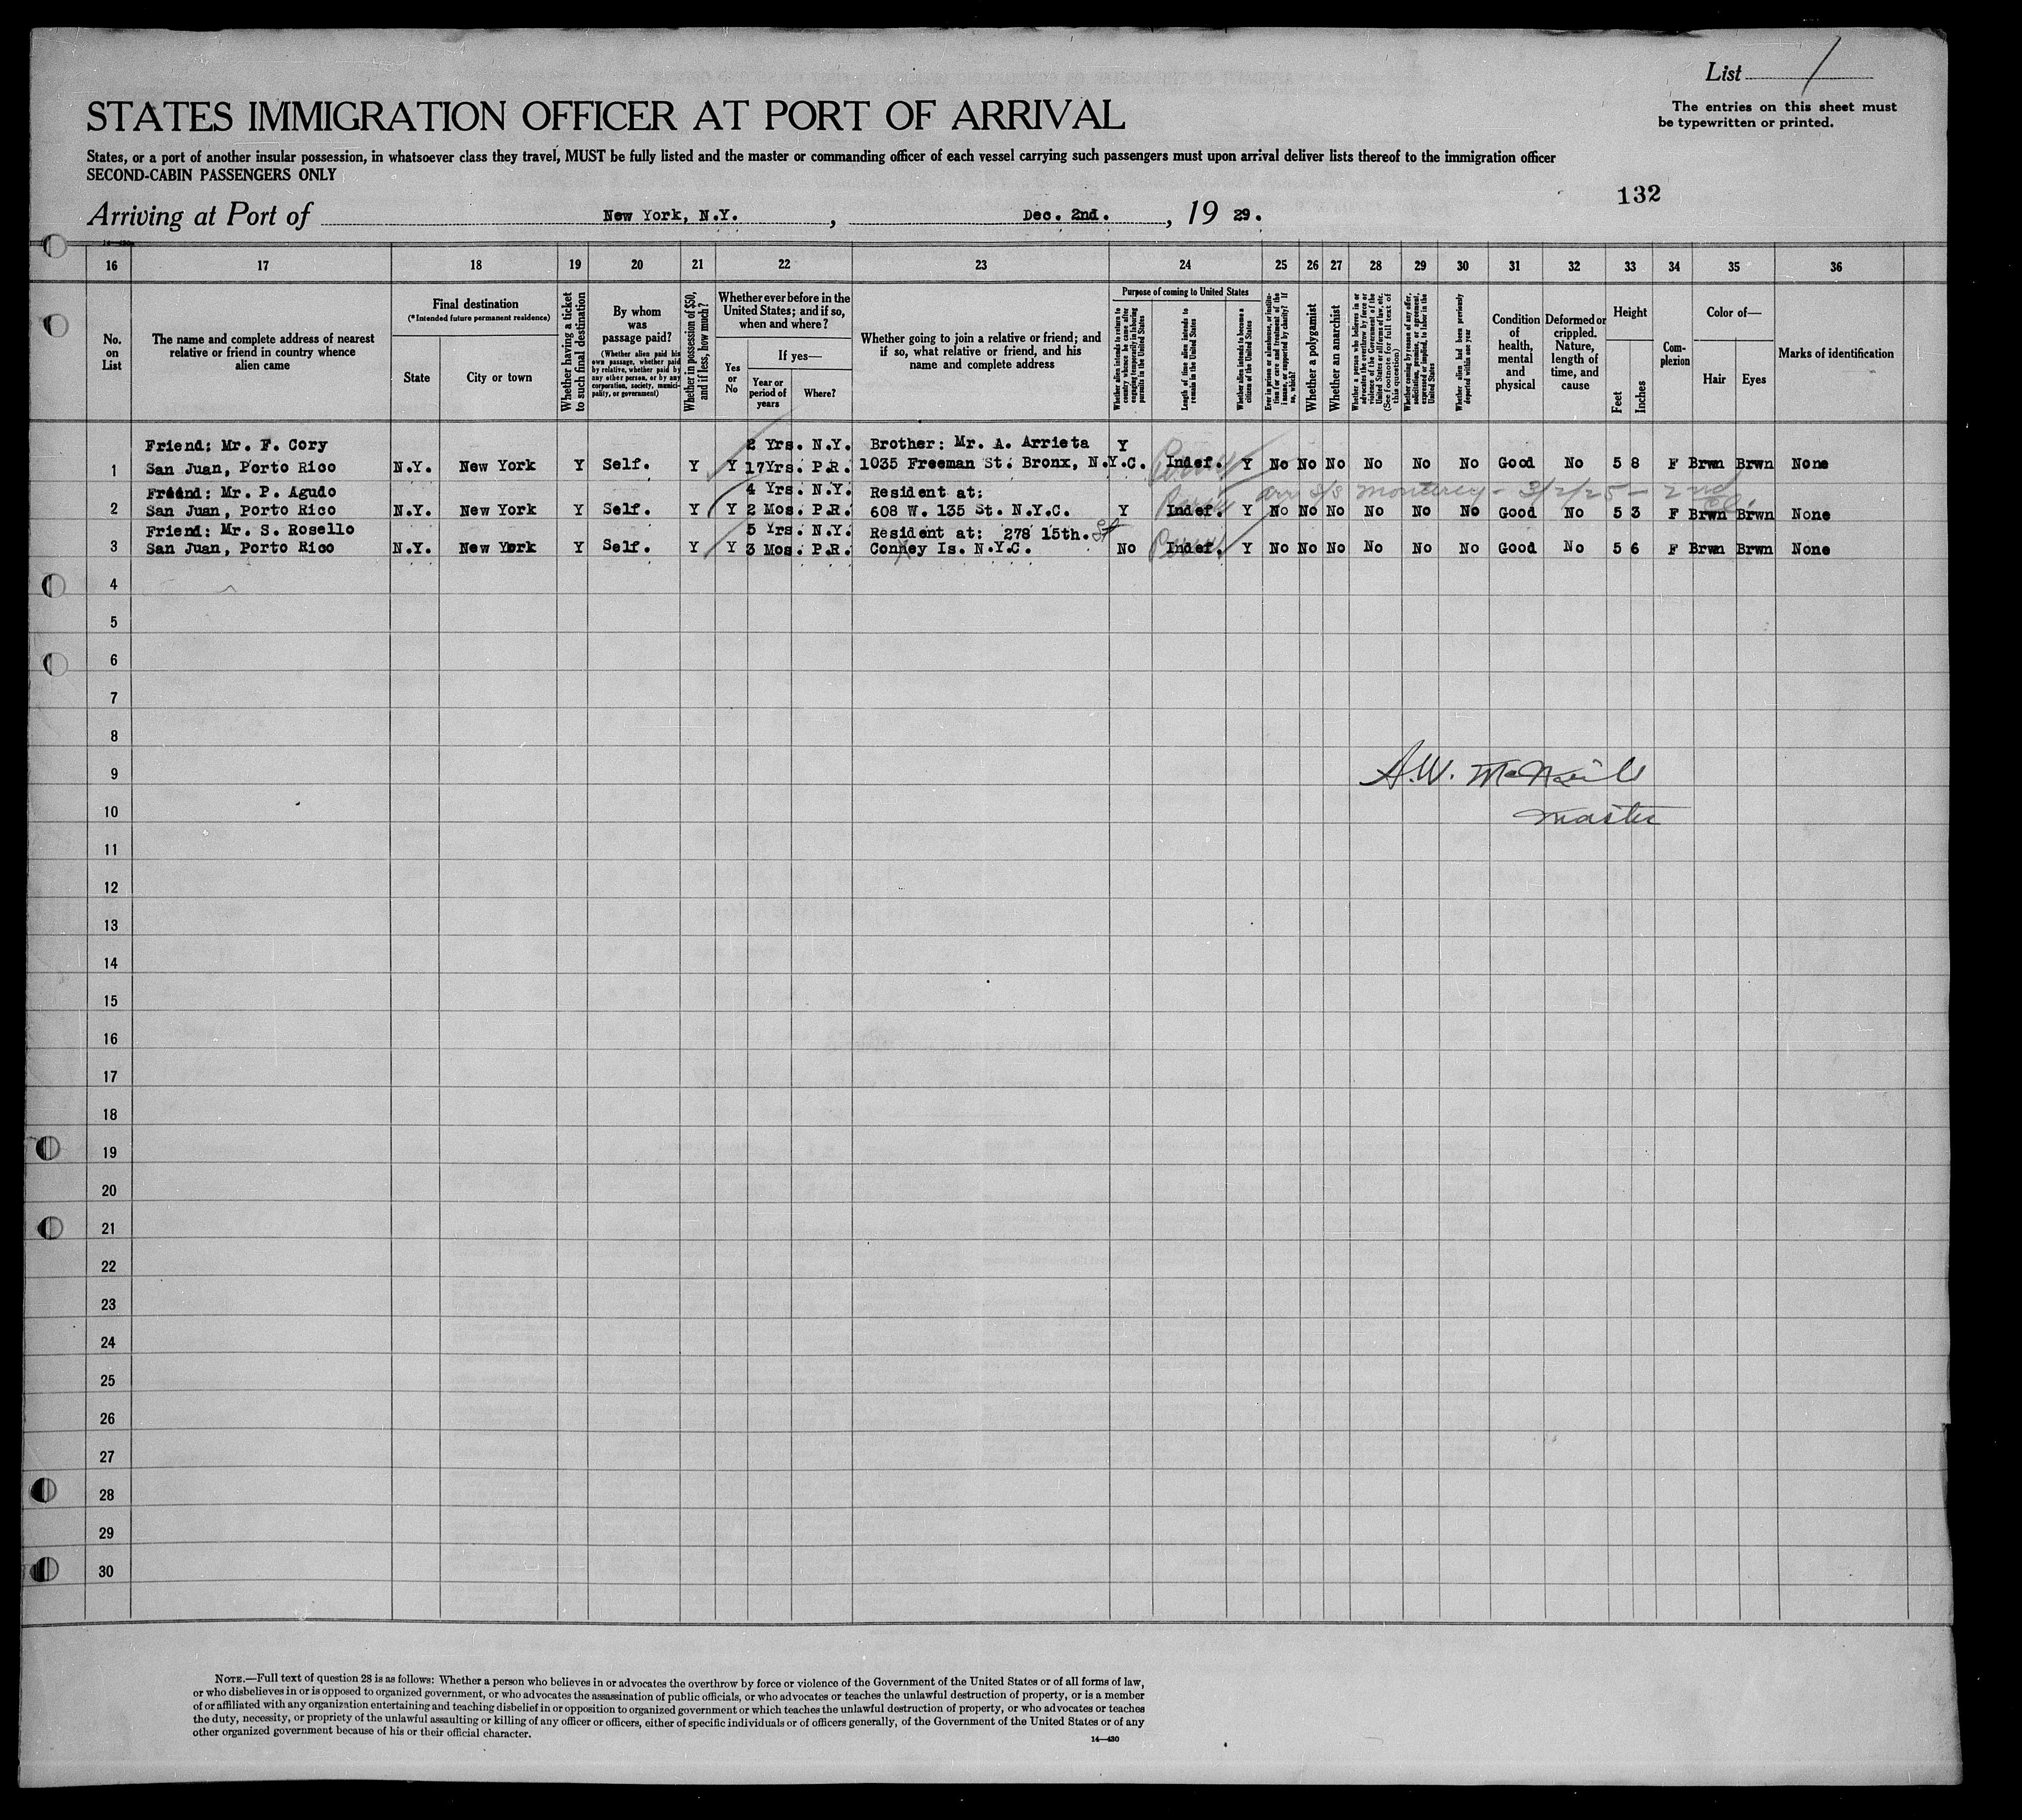 List 1
The entries on this sheet must
be typewritten or printed.
STATES IMMIGRATION OFFICER AT PORT OF ARRIVAL
States, or a port of another insular possession, in whatsoever class they travel, MUST be fully listed and the master or commanding officer of each vessel carrying such passengers must upon arrival deliver lists thereof to the immigration officer
SECOND-CABIN PASSENGERS ONLY
132
Arriving at Port of New York, N.Y., Dec. 2nd., 19 29.
16 17 18 19 20 21 22 23 24 25 26 27 28 29 30 31 32 33 34 35 36
No.
on
List
The name and complete address of nearest
relative or friend in country whence
alien came
Final destination
(*Intended future permanent residence)
State
City or town
Whether having a ticket
to such final destination
By whom
was
passage paid?
(Whether alien paid his
own passage, whether paid
by relative, whether paid by
any other person, or by any
corporation, society, munici-
pality, or government)
Whether in possession of $50,
and if less, how much?
Whether ever before in the
United States; and if so,
when and where?
Yes
or
No
If yes—
Year or
period of
years
Where?
Whether going to join a relative or friend; and
if so, what relative or friend, and his
name and complete address
Purpose of coming to United States
Whether alien intends to return to
country whence he came after
engaging temporarily in laboring
pursuits in the United States
Length of time alien intends to
remain in the United States
Whether alien intends to become a
citizen of the United States
Ever in prison or almshouse, or institu-
tion for care and treatment of the
insane, or supported by charity? If
so, which?
Whether a polygamist
Whether an anarchist
Whether a person who believes in or
advocates the overthrow by force or
violence of the Government of the
United States or all forms of law, etc.
(See footnote for full text of
this question)
Whether coming by reason of any offer,
solicitation, promise, or agreement,
expressed or implied, to labor in the
United States
Whether alien had been previously
deported within one year
Condition
of
health,
mental
and
physical
Deformed or
crippled.
Nature,
length of
time, and
cause
Height
Feet
Inches
Com-
plexion
Color of—
Hair
Eyes
Marks of identification
Friend: Mr. F. Cory 2 Yrs. N.Y. Brother: Mr. A. Arrieta Y
1 San Juan, Porto Rico N.Y. New York Y Self. Y Y 17Yrs. P.R. 1035 Freeman St. Bronx, N.Y.C. Indef. Y No No No No No No Good No 5 8 F Brwn Brwn None
Friend: Mr. P. Agudo 4 Yrs. N.Y. Resident at: arr S/S Monterey - 3/2/25 - 2nd
2 San Juan, Porto Rico N.Y. New York Y Self. Y Y 2 Mos. P.R. 608 W. 135 St. N.Y.C. Y Indef. Y No No No No No No Good No 5 3 F Brwn Brwn None
Friend: Mr. S. Rosello 5 Yrs. N.Y. Resident at: 278 15th. St
3 San Juan, Porto Rico N.Y. New York Y Self. Y Y 3 Mos. P.R. Conney Is. N.Y.C. No Indef. Y No No No No No No Good No 5 6 F Brwn Brwn None
4
5
6
7
8
9 A.W. McNeill
10 Master
11
12
13
14
15
16
17
18
19
20
21
22
23
24
25
26
27
28
29
30
NOTE.—Full text of question 28 is as follows: Whether a person who believes in or advocates the overthrow by force or violence of the Government of the United States or of all forms of law,
or who disbelieves in or is opposed to organized government, or who advocates the assassination of public officials, or who advocates or teaches the unlawful destruction of property, or is a member
of or affiliated with any organization entertaining and teaching disbelief in or opposition to organized government or which teaches the unlawful destruction of property, or who advocates or teaches
the duty, necessity, or propriety of the unlawful assaulting or killing of any officer or officers, either of specific individuals or of officers generally, of the Government of the United States or of any
other organized government because of his or their official character.
14—430